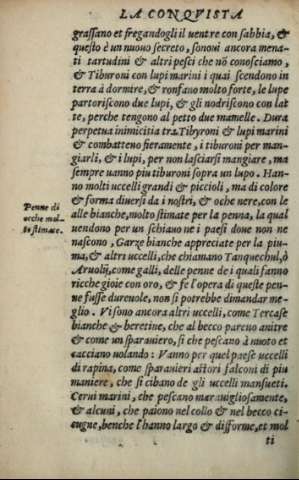 LA CONQVISTA
grassano et fregandogli il uentre con sabbia, &
questo è un nuouo secreto, sonoui ancora mena-
ti tartudini & altri pesci che nõ conosciamo,
& Tiburoni con lupi marini i quai scendono in
terra à dormire, & ronfano molto forte, le lupe
partoriscono due lupi, & gli nodriscono con lat
te, perche tengono al petto due mamelle. Dura
perpetua inimicitia tra Tibyroni & lupi marini
& combatteno fieramente, i tiburoni per man-
giarli, & i lupi, per non lasciarsi mangiare, ma
sempre uanno piu tiburoni sopra un lupo. Han-
no molti uccelli grandi & piccioli, ma di colore
& forma diuersi da i nostri, & oche nere, con le
Penne di
ocche mol
to stimate.
alle bianche, molto stimate per la penna, la qual
uendono per un schiauo ne i paesi doue non ne
nascono, Garze bianche appreciate per la piu-
ma, & altri uccelli, che chiamano Tanquechul, ò
Aruolij, come galli, delle penne de i quali fanno
ricche gioie con oro, & se l'opera di queste pen-
ne fusse dureuole, non si potrebbe dimandar me-
glio. Visono ancora altri uccelli, come Tercase
bianche & beretine, che al becco pareno anitre
& come un sparauiero, si che pescano à nuoto et
cacciano uolando: Vanno per quel paese uccelli
di rapina, come sparauieri astori falconi di piu
maniere, che si cibano de gli uccelli mansueti.
Cerui marini, che pescano marauigliosamente,
& alcuni, che paiono nel collo & nel becco ci-
cugne, benche l'hanno largo & difforme, et mol
ti